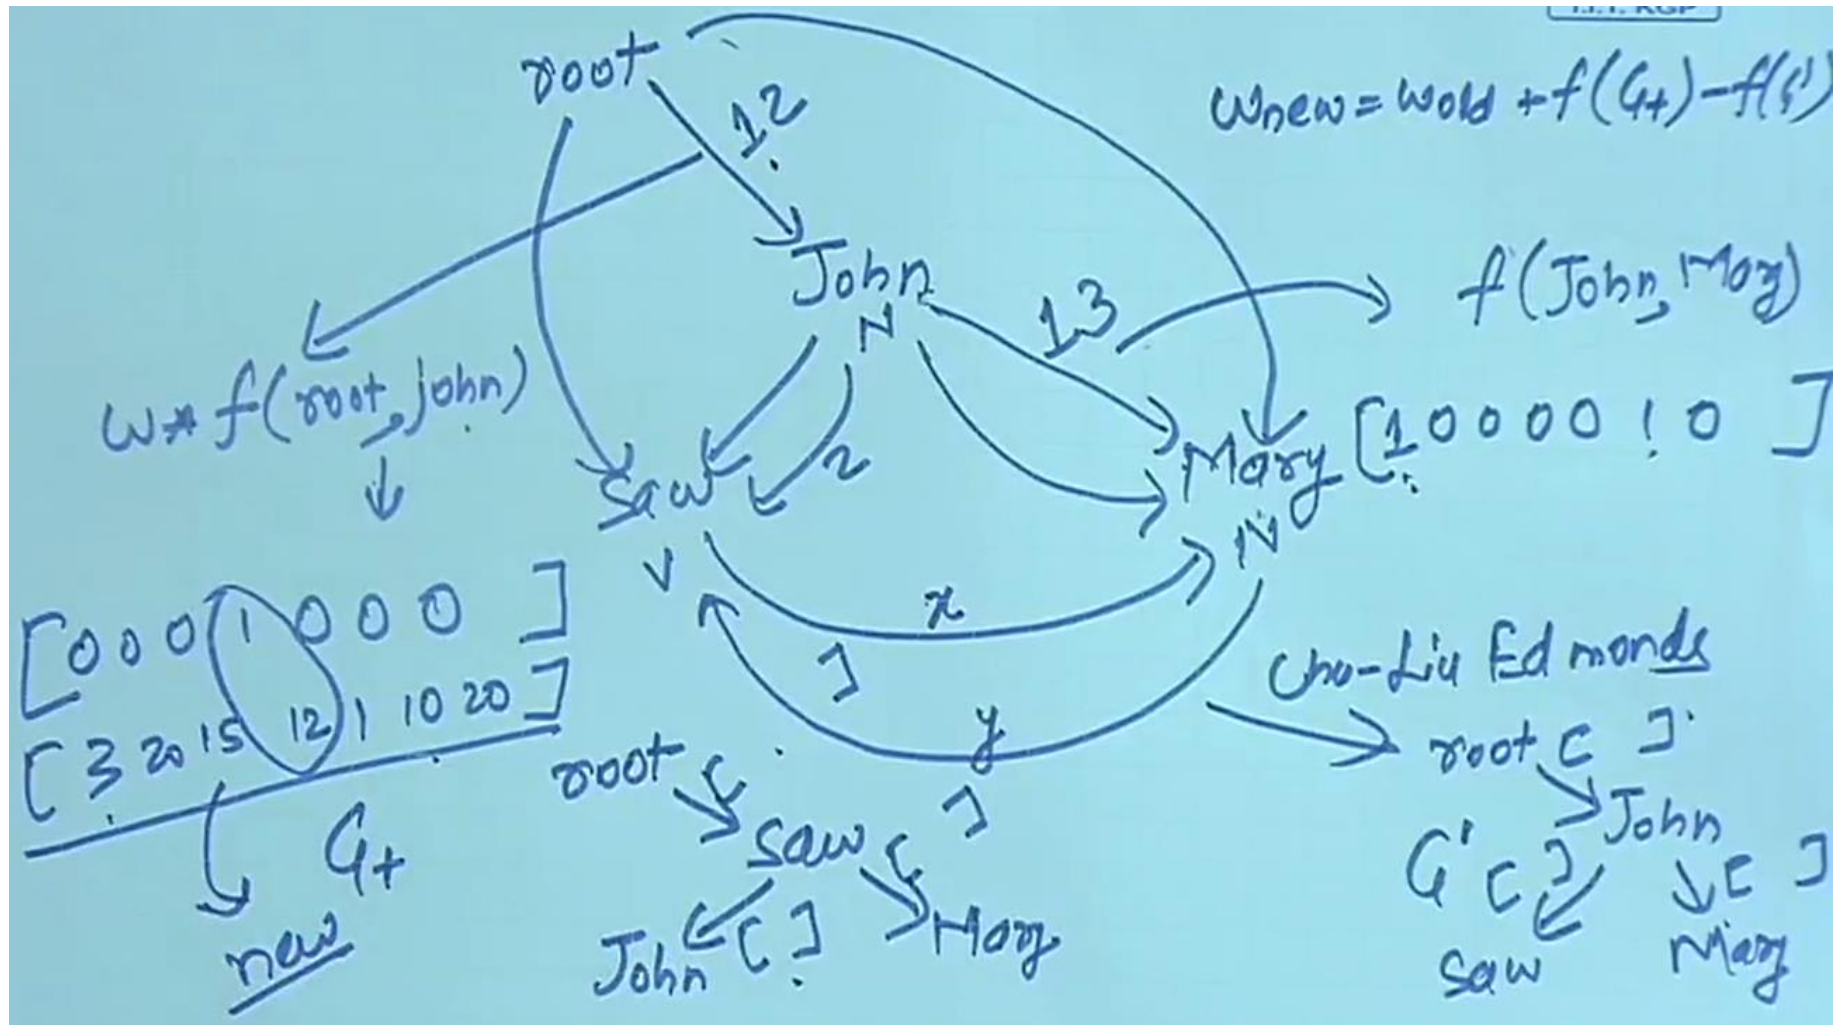 I.I.T. KGP
root
12
wnew = wold + f(G+) - f(G')
John
N
13
f(John, Mary)
w* f(root, john)
Saw
V
2
Mary [1 0 0 0 0 1 0 ]
N
[0 0 0 1 0 0 0 ]
[3 20 15 12 1 10 20 ]
x
]
y
G+
new
root [ ]
saw [
John [ ]
Mary
Chu-Liu Edmonds
root [ ]
John
G' [ ]
[ ]
saw
Mary